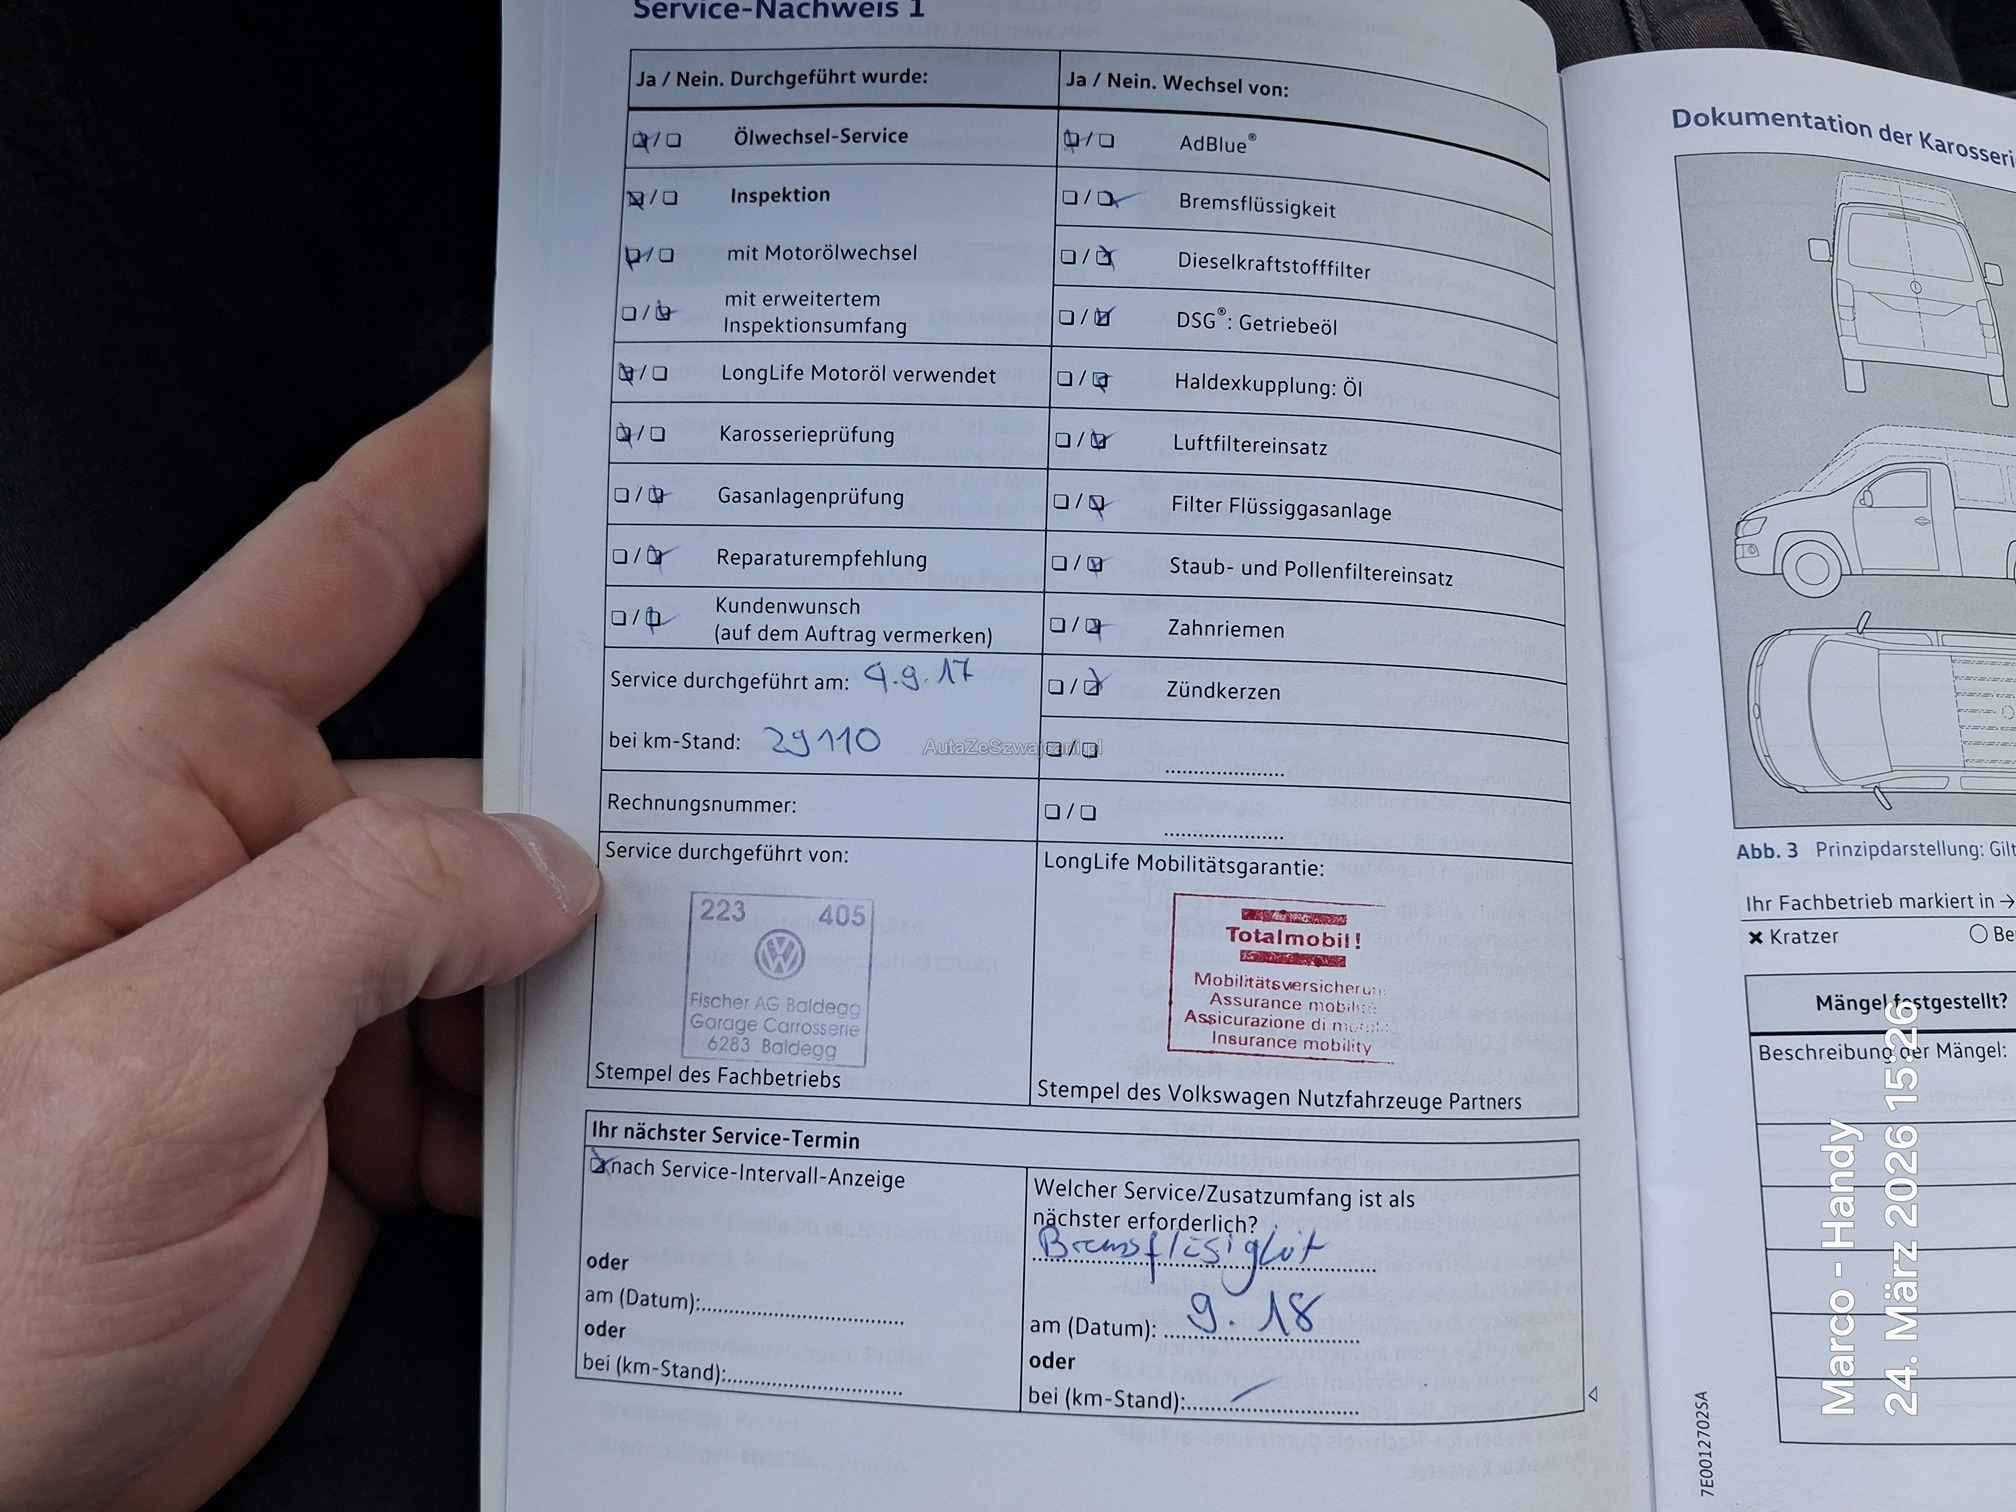 Service-Nachweis 1
Ja / Nein. Durchgeführt wurde:
Ja / Nein. Wechsel von:
Ölwechsel-Service
AdBlue®
Inspektion
Bremsflüssigkeit
mit Motorölwechsel
Dieselkraftstofffilter
mit erweitertem
Inspektionsumfang
DSG®: Getriebeöl
LongLife Motoröl verwendet
Haldexkupplung: Öl
Karosserieprüfung
Luftfiltereinsatz
Gasanlagenprüfung
Filter Flüssiggasanlage
Reparaturempfehlung
Staub- und Pollenfiltereinsatz
Kundenwunsch
(auf dem Auftrag vermerken)
Zahnriemen
Service durchgeführt am: 4.9.17
Zündkerzen
bei km-Stand: 29110
AutaZeSzwajcarii.pl
Rechnungsnummer:
Service durchgeführt von:
LongLife Mobilitätsgarantie:
223 405
Fischer AG Baldegg
Garage Carrosserie
6283 Baldegg
Totalmobil!
Mobilitätsversicherun
Assurance mobilité
Assicurazione di
Insurance mobility
Stempel des Fachbetriebs
Stempel des Volkswagen Nutzfahrzeuge Partners
Ihr nächster Service-Termin
nach Service-Intervall-Anzeige
oder
am (Datum):
oder
bei (km-Stand):
Welcher Service/Zusatzumfang ist als
nächster erforderlich?
Bremsflüsigkeit
am (Datum): 9.18
oder
bei (km-Stand):
Dokumentation der Karosseri
Abb. 3 Prinzipdarstellung: Gilt
Ihr Fachbetrieb markiert in →
× Kratzer
Be
Mängel festgestellt?
Beschreibung der Mängel:
7E0012702SA
Marco - Handy
24. März 2026 15:26